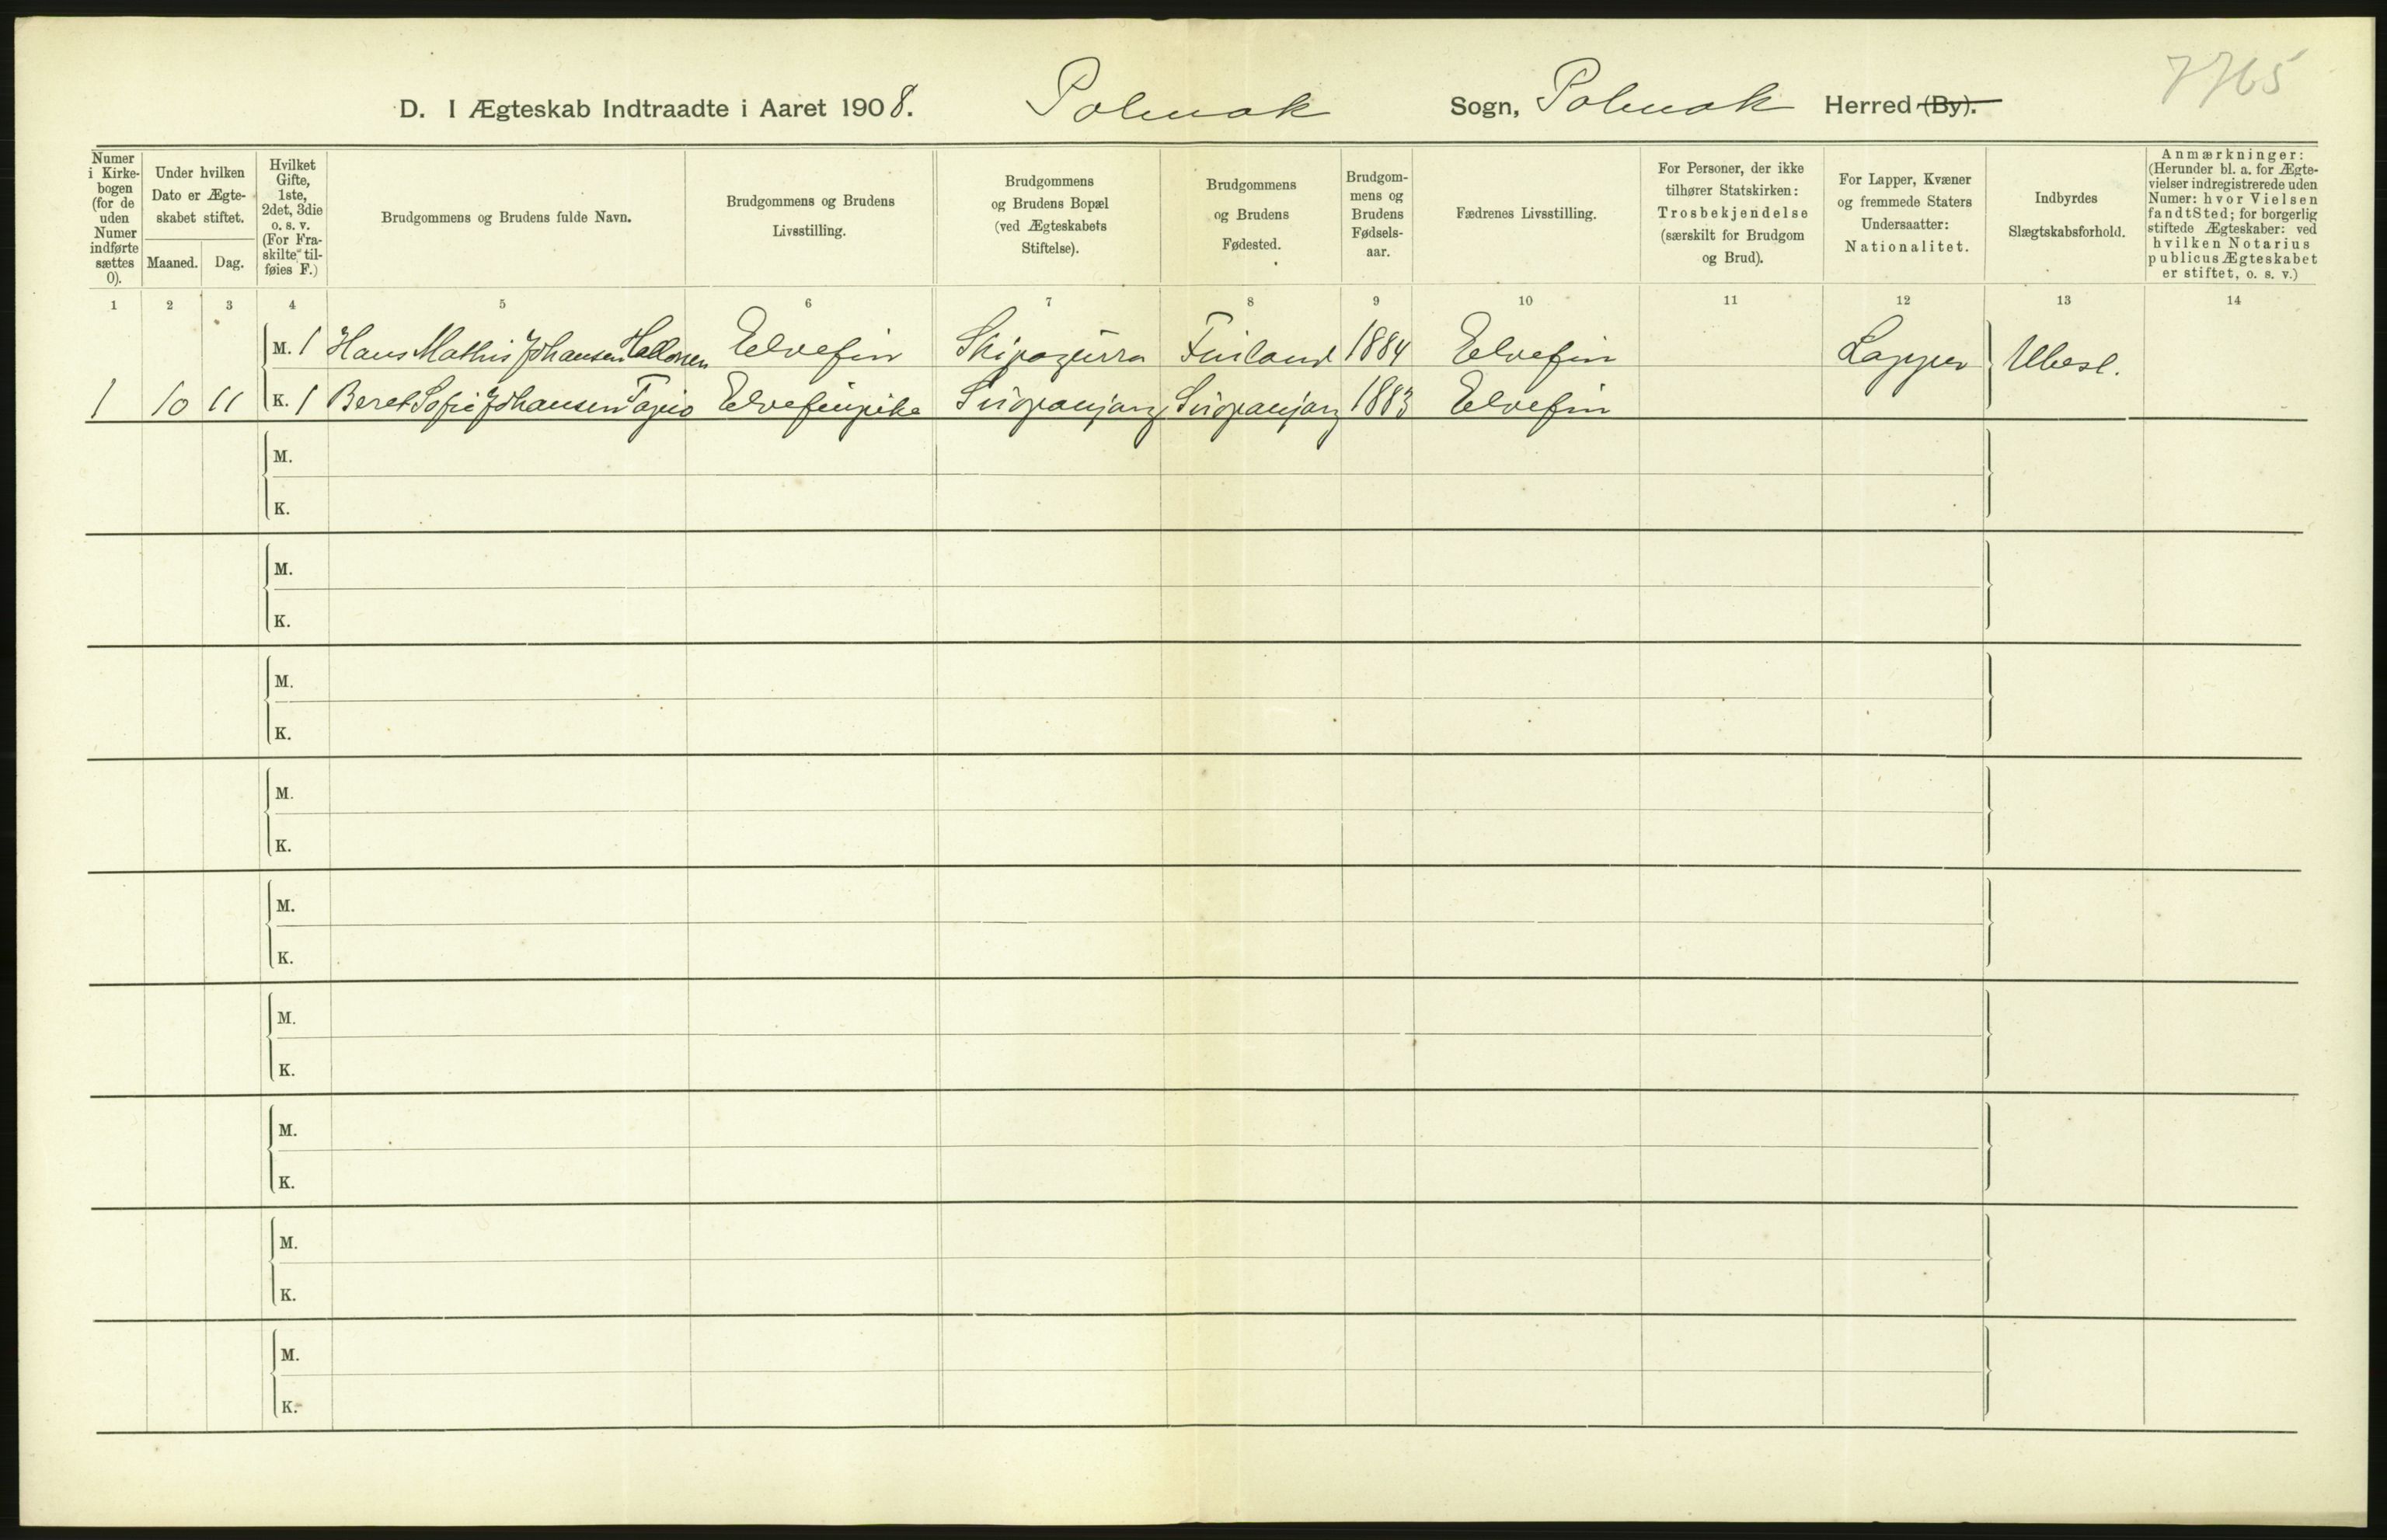 7765
D. I Ægteskab Indtraadte i Aaret 1908. Polmak Sogn, Polmak Herred (By).
Numer i Kirkebogen (for de uden Numer indførte sættes 0).
Under hvilken Dato er Ægteskabet stiftet.
Maaned.
Dag.
Hvilket Gifte, 1ste, 2det, 3die o. s. v. (For Fraskilte tilføies F.)
Brudgommens og Brudens fulde Navn.
Brudgommens og Brudens Livsstilling.
Brudgommens og Brudens Bopæl (ved Ægteskabets Stiftelse).
Brudgommens og Brudens Fødested.
Brudgommens og Brudens Fødselsaar.
Fædrenes Livsstilling.
For Personer, der ikke tilhører Statskirken: Trosbekjendelse (særskilt for Brudgom og Brud).
For Lapper, Kvæner og fremmede Staters Undersaatter: Nationalitet.
Indbyrdes Slægtskabsforhold.
Anmærkninger: (Herunder bl. a. for Ægtevielser indregistrerede uden Numer: hvor Vielsen fandt Sted; for borgerlig stiftede Ægteskaber: ved hvilken Notarius publicus Ægteskabet er stiftet, o. s. v.)
1 2 3 4 5 6 7 8 9 10 11 12 13 14
M. 1 Hans Mathis Johansen Hallonen Elvefin Skipagurra Finland 1884 Elvefin Lapper Ubesl.
1 10 11 K. 1 Beret Sofie Johansen Tapio Elvefinpike Sirpanjarg Sirpanjarg 1883 Elvefin
M.
K.
M.
K.
M.
K.
M.
K.
M.
K.
M.
K.
M.
K.
M.
K.
M.
K.